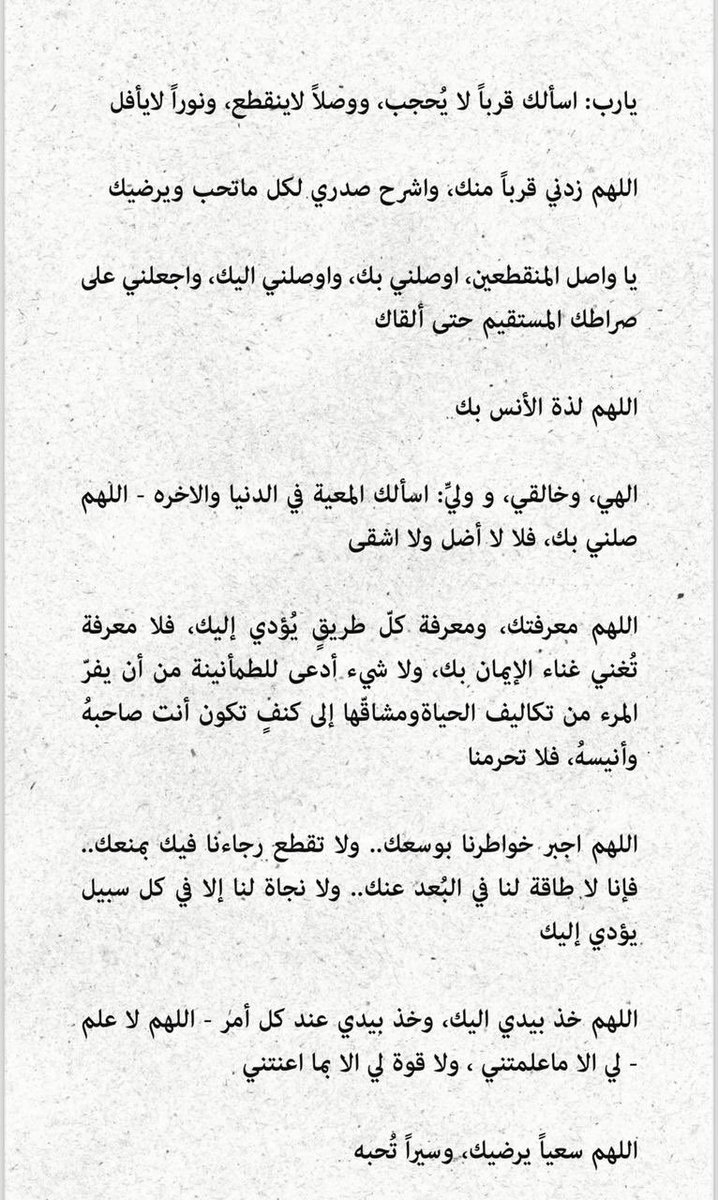 يارب: اسألك قرباً لا يُحجب، ووصلاً لاينقطع، ونوراً لايأفل
اللهم زدني قرباً منك، واشرح صدري لكل ماتحب ويرضيك
يا واصل المنقطعين، اوصلني بك، واوصلني اليك، واجعلني على
صراطك المستقيم حتى ألقاك
اللهم لذة الأنس بك
الهي، وخالقي، و وليِّ: اسألك المعية في الدنيا والاخره - اللهم
صلني بك، فلا لا أضل ولا اشقى
اللهم معرفتك، ومعرفة كلّ طريقٍ يُؤدي إليك، فلا معرفة
تُغني غناء الإيمان بك، ولا شيء أدعى للطمأنينة من أن يفرّ
المرء من تكاليف الحياةومشاقّها إلى كنفٍ تكون أنت صاحبهُ
وأنيسهُ، فلا تحرمنا
اللهم اجبر خواطرنا بوسعك.. ولا تقطع رجاءنا فيك بمنعك..
فإنا لا طاقة لنا في البُعد عنك.. ولا نجاة لنا إلا في كل سبيل
يؤدي إليك
اللهم خذ بيدي اليك، وخذ بيدي عند كل أمر - اللهم لا علم
- لي الا ماعلمتني ، ولا قوة لي الا بما اعنتني
اللهم سعياً يرضيك، وسيراً تُحبه